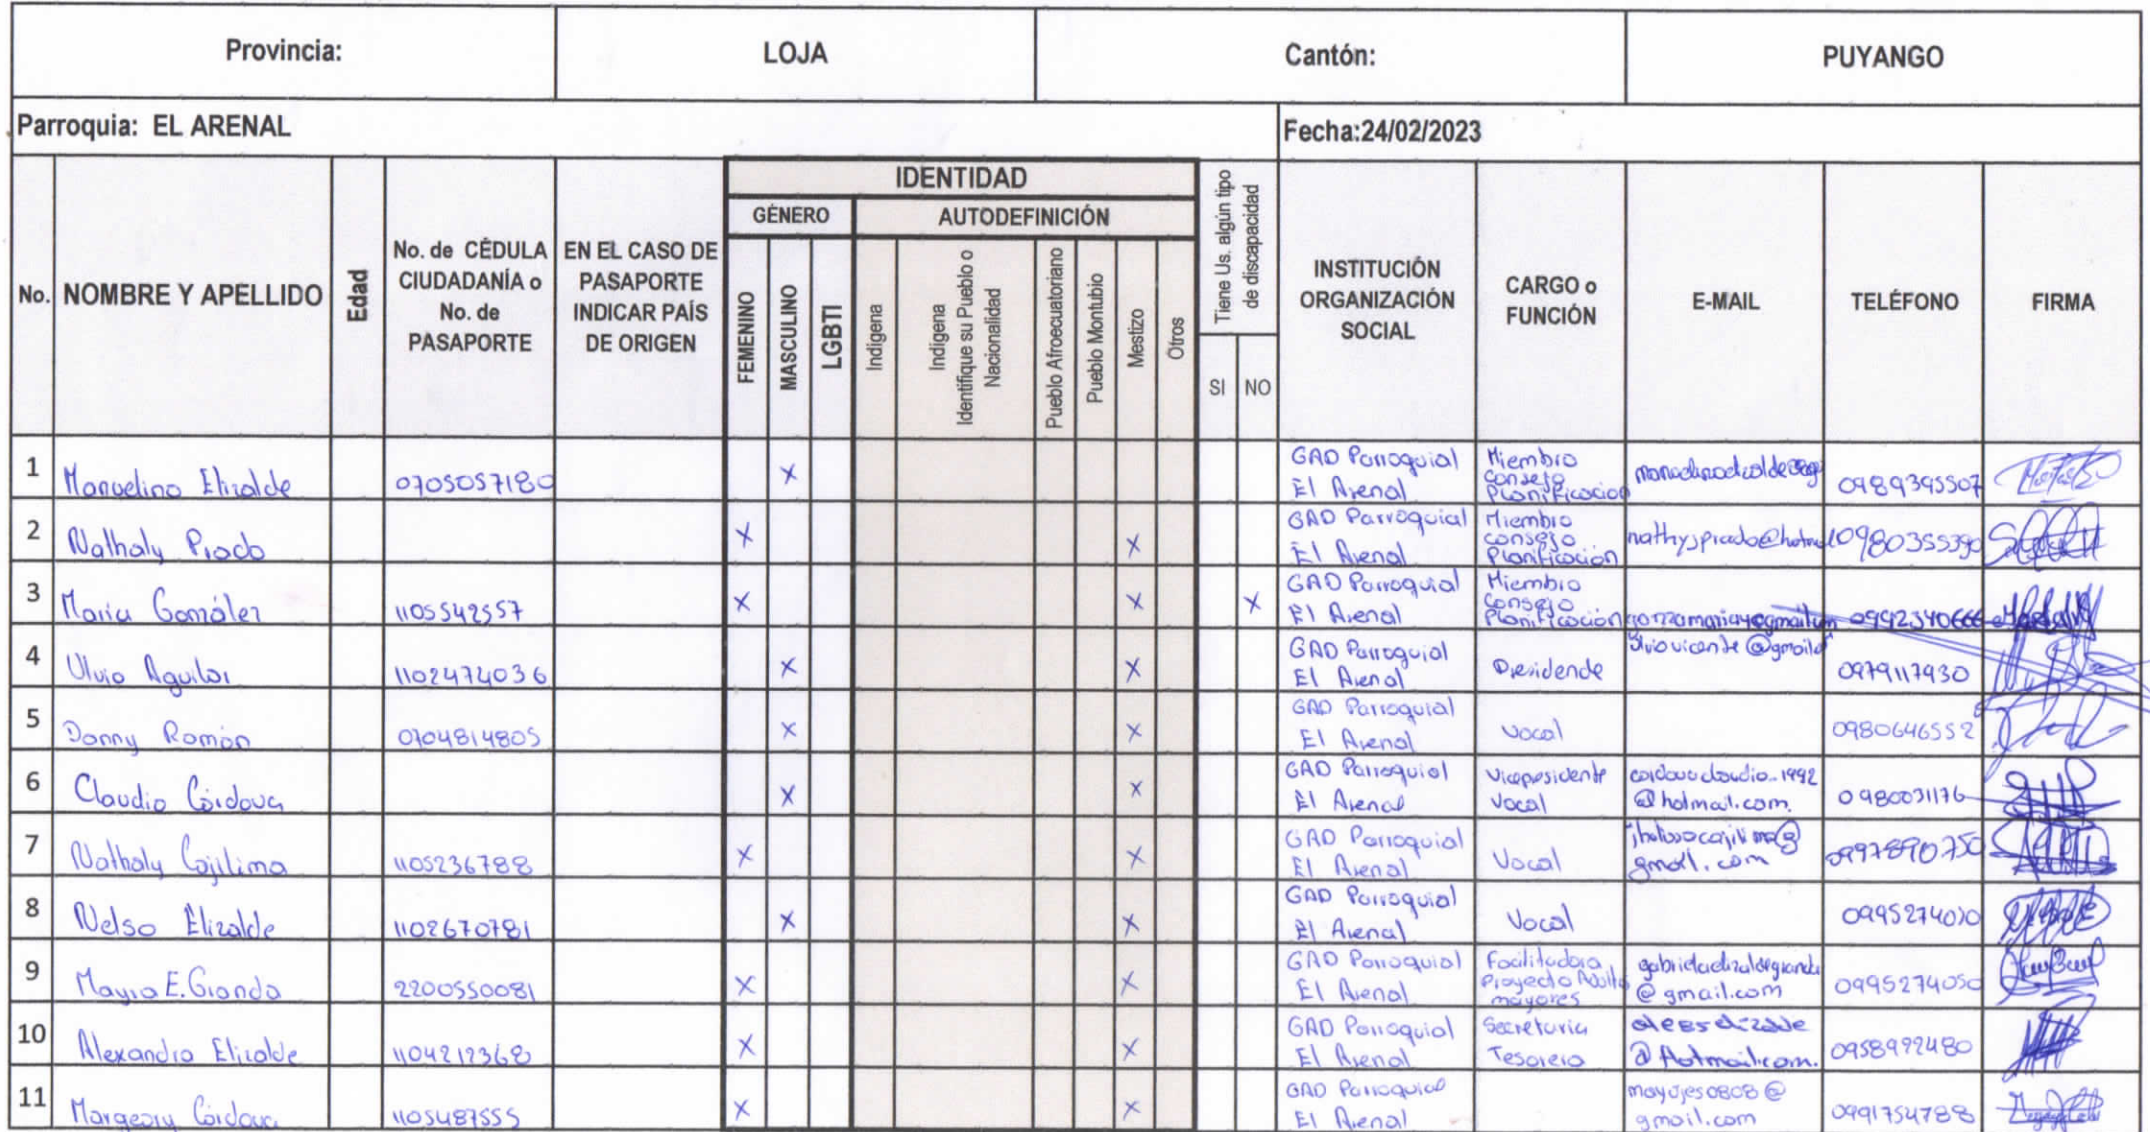 Provincia: LOJA Cantón: PUYANGO
Parroquia: EL ARENAL Fecha:24/02/2023
No. NOMBRE Y APELLIDO Edad No. de CÉDULA CIUDADANÍA o No. de PASAPORTE EN EL CASO DE PASAPORTE INDICAR PAÍS DE ORIGEN
IDENTIDAD
GÉNERO AUTODEFINICIÓN
FEMENINO MASCULINO LGBTI Indígena Indígena Identifique su Pueblo o Nacionalidad Pueblo Afroecuatoriano Pueblo Montubio Mestizo Otros
Tiene Us. algún tipo de discapacidad
SI NO
INSTITUCIÓN ORGANIZACIÓN SOCIAL CARGO o FUNCIÓN E-MAIL TELÉFONO FIRMA
1 Manuelino Elizalde 0705057180 X GAD Parroquial El Arenal Miembro Consejo Planificacion 0989395507
2 Nathaly Prado X X GAD Parroquial El Arenal Miembro consejo Planificación 0980355390
3 Maria González 1105542557 X X X GAD Parroquial El Arenal Miembro Consejo Planificación 0992340666
4 Ulvio Aguilar 1102474036 X X GAD Parroquial El Arenal 0979117930
5 Danny Román 0704814805 X X GAD Parroquial El Arenal Vocal 0980646552
6 Claudio Córdova X X GAD Parroquial El Arenal Vicepresidente Vocal @hotmail.com. 0980031176
7 Nathaly Cajilima 1105236788 X X GAD Parroquial El Arenal Vocal gmail.com 0997890750
8 Nelso Elizalde 1102670781 X X GAD Parroquial El Arenal Vocal
9 Mayra E. Granda 2200550081 X X GAD Parroquial El Arenal Facilitadora Proyecto mayores @gmail.com 0995274050
10 Alexandra Elizalde 1104212368 X X GAD Parroquial El Arenal Secretaria Tesorera 0958992480
11 Margeory Córdova 1105487555 X X GAD Parroquial El Arenal mayojes0808@ gmail.com 0991754788